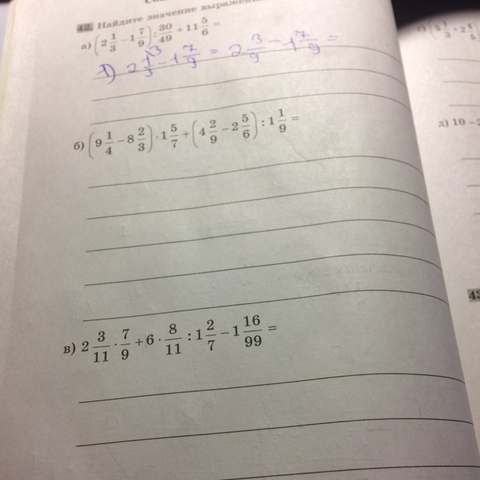 42. Найдите значение выражен
а) (2 1/3 − 1 7/9) : 30/49 + 11 5/6 =
1) 2 1/3 ³ − 1 7/9 = 2 3/9 − 1 7/9 =
б) (9 1/4 − 8 2/3) · 1 5/7 + (4 2/9 − 2 5/6) : 1 1/9 =
в) 2 3/11 · 7/9 + 6 · 8/11 : 1 2/7 − 1 16/99 =
д) 10 −
43